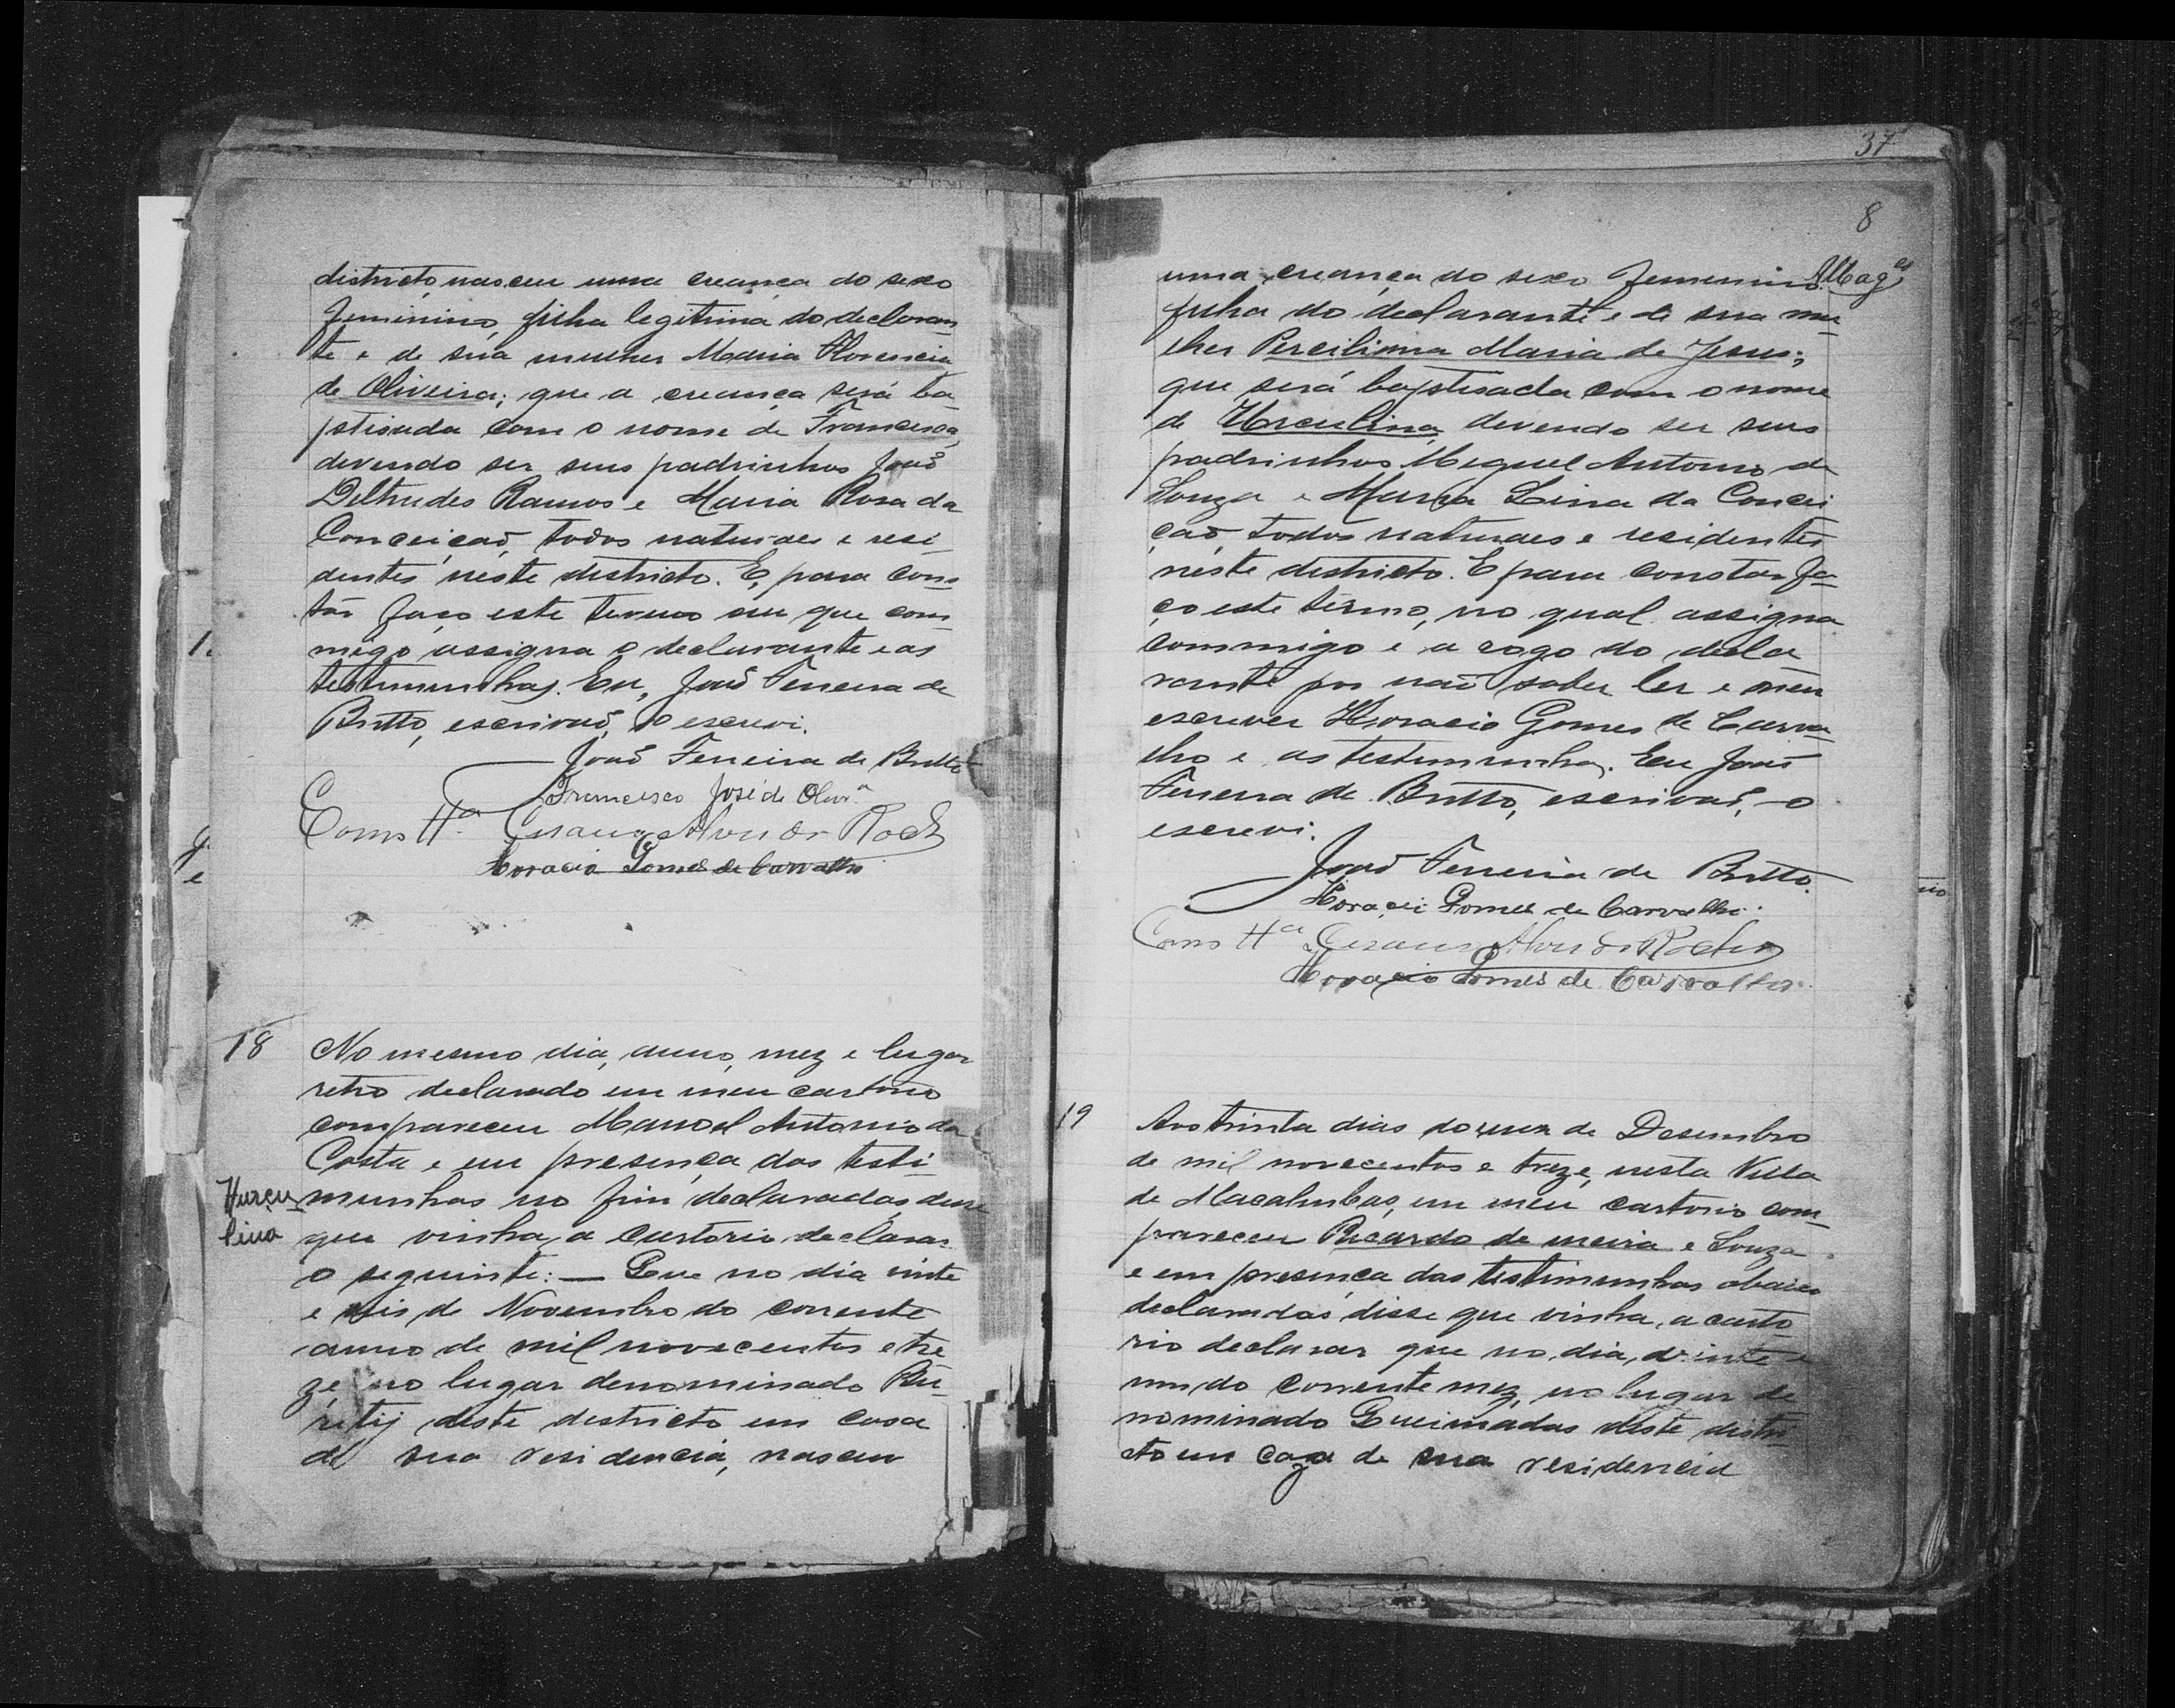 districto, nasceu uma creança do sexo
feminino, filha legitima do declaran
te e de sua mulher Maria Florencia
de Oliveira; que a creança será ba
ptisada com o nome de Francisca,
devendo ser seus padrinhos João
Deltrudes Ramos e Maria Rosa da
Conceição, todos naturaes e resi-
dentes neste districto. E, para cons
tar faço este termo em que com
migo assigna o declarante e as
testimunhas. Eu, João Ferreira de
Britto, escrivão, o escrevi.
João Ferreira de Britto
Francisco José de Olivrª
Como Hª Alves da Roch
Horacio Gomes de Carvalho
18
No mesmo dia, anno, mez e lugar
retro declarado em meu cartorio
compareceu Manoel Antonio da
Costa e em presença das testi
Hurcu
lina
munhas no fim declaradas, disse
que vinha a cartorio declarar
o seguinte: — Que no dia vinte
e seis de Novembro do corrente
anno de mil novecentos e tre
ze, no lugar denominado
deste districto em casa
de sua residencia, nasceu
37
8
uma creança do sexo femenino
filha do declarante e de sua mu
lher Perciliana Maria de Jesus;
que será baptisada com o nome
de Hurculina, devendo ser seus
padrinhos Miguel Antonio de
Souza e Maria Lina da Concei
ção, todos naturaes e residentes
neste districto. E para constar fa-
ço este termo, no qual assigna
commigo e a rogo do decla
rante por não saber ler e nem
escrever Horacio Gomes de Carva
lho e as testimunhas. Eu João
Ferreira de Britto, escrivão, o
escrevi.
João Ferreira de Britto.
Horacio Gomes de Carvalho.
Como Hª Alves da Rocha
Horacio Gomes de Carvalho.
19
Aos trinta dias do mez de Desembro
de mil novecentos e treze, nesta Villa
de Macahubas, em meu cartorio com-
pareceu Ricardo de meira e Souza
e em presença das testimunhas abaixo
declaradas disse que vinha a carto
rio declarar que no dia vinte e
um do corrente mez, no lugar de
nominado Queimadas deste distri-
cto em caza de sua residencia